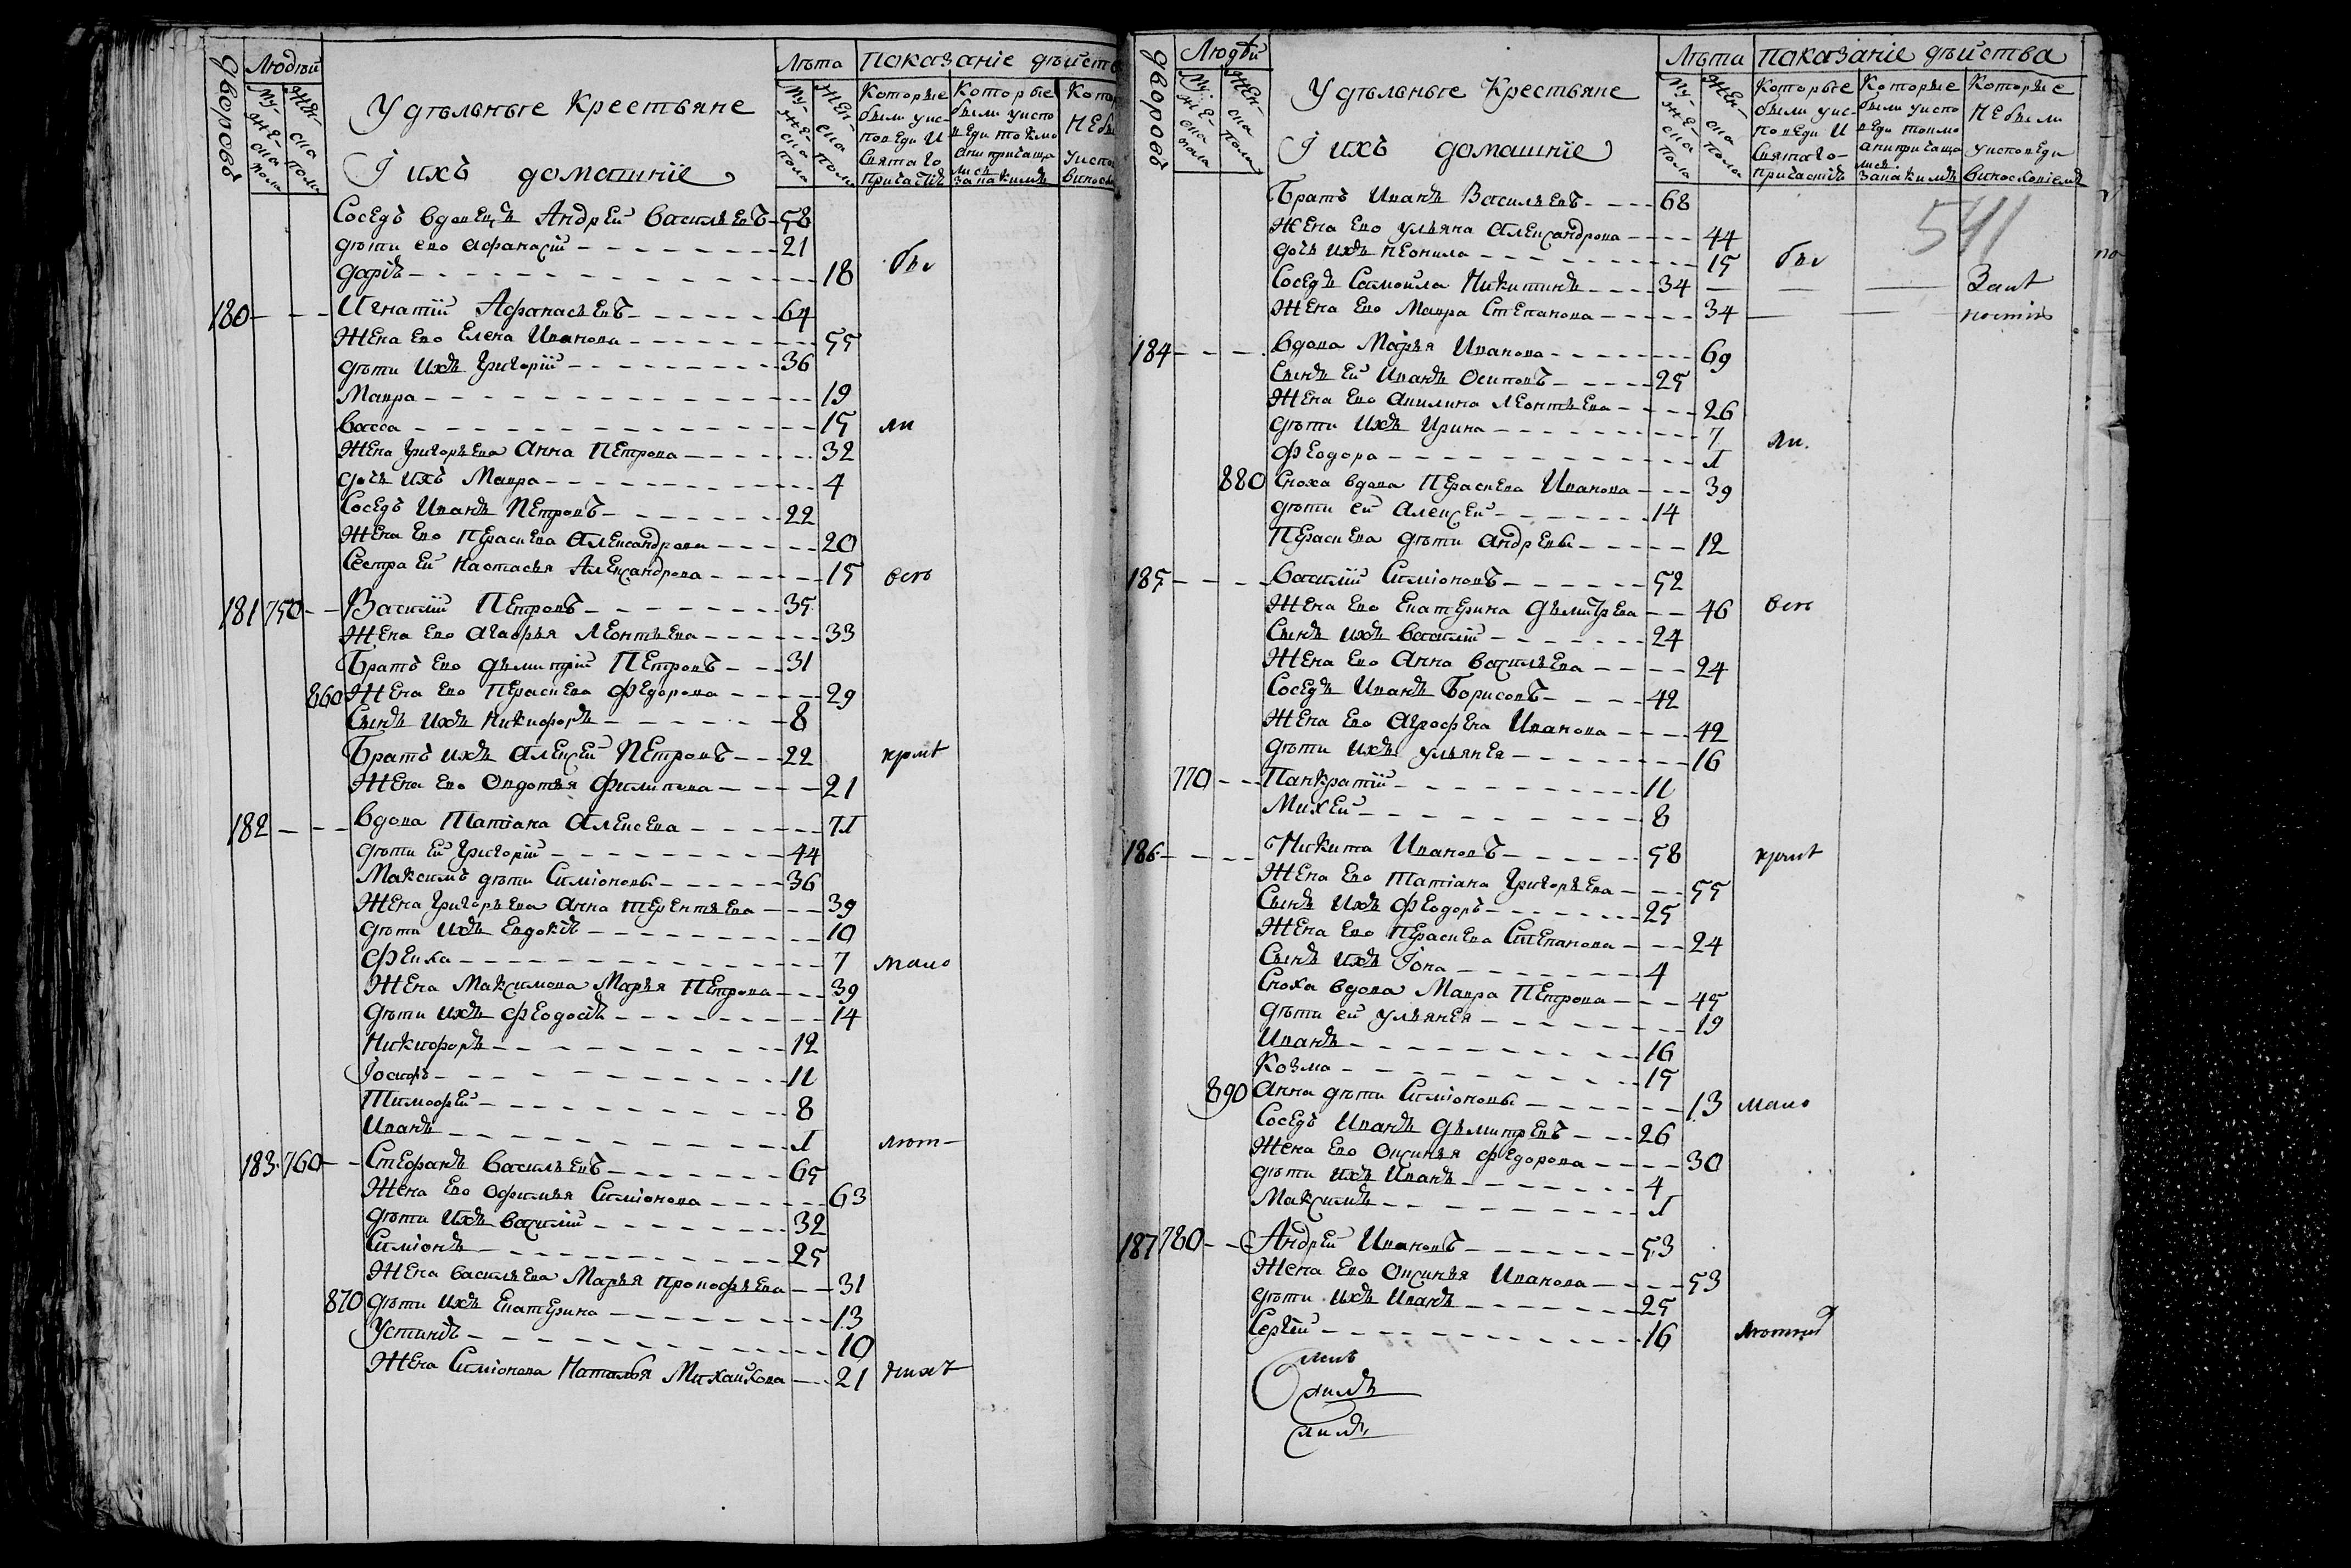 дворовъ
Людѣй
Му-
же-
ска
пола
Жен-
ска
пола
Удѣльныѣ Крестьянѣ
І ихъ домашніе
Лѣта
Му-
же-
ска
пола
Жен-
ска
пола
Показаніе дѣйств
Которые были уис-
поведи И
Святаго
причастіѣ
Которые
были уиспо
веди токмо
Анипричаща
лись
Запакимъ
Соседъ вдовецъ Андрей Васильевъ 58
дѣти ево Афанасій 21
дафіѣ 18 бы
180 Игнатій Афанасьевъ 64
Жена Ево Елена Иванова 55
дѣти Ихъ Григорій 36
Мавра 19
Васса 15 ли
Жена Григорьева Анна Петрова 32
дочь ихъ Мавра 4
Соседъ Иванъ Петровъ 22
Жена Ево Праскева Александрова 20
Сестра Ей Настасья Александрова 15 всѣ
181 750 Василій Петровъ 35
Жена Ево Агафья Леонтьева 33
Братъ Ево Дьмитрій Петровъ 31
860 Жена Ево Пераскева Федорова 29
Сынъ Ихъ Никифоръ 8
Братъ ихъ Алексей Петровъ 22 кромѣ
Жена Ево Овдотья Филипева 21
182 вдова Татіана Алексева 71
дѣти Ей Григорій 44
Максимъ дѣти Симіоновы 36
Жена Григорьева Анна Терентьева 39
дѣти Ихъ Евдокіѣ 10
Фекла 7 мало
Жена Максимова Марья Петрова 39
дѣти ихъ Феодосіѣ 14
Никифоръ 12
Іосифъ 11
Тимофей 8
Иванъ 1 лѣт
183 760 Стефанъ Васильевъ 65
Жена Ево Офимья Симіонова 63
дѣти Ихъ Василій 32
Симіонъ 25
Жена Васильева Марья Прокофьева 31
870 дѣти Ихъ Екатерина 13
Устиніѣ 10
Жена Симіонова Наталья Михайлова 21 нихъ
дворовъ
Людѣй
Му-
же-
ска
пола
Жен-
ска
пола
Удѣльныѣ Крестьянѣ
І ихъ домашніе
Лѣта
Му-
же-
ска
пола
Жен-
ска
пола
показаніе дѣйства
Которые
были уис-
поведи И
Святаго
причастіѣ
Которые
были уиспо
веди токмо
Анипричаща
лись
Запакимъ
Которые
Небыли
уисповеди
541
Братъ Иванъ Васильевъ 68
Жена Ево Ульяна Александрова 44
дочь ихъ Неонила 15 бы
Соседъ Самойла Никитинъ 34
Жена Ево Мавра Степанова 34
184 вдова Марья Иванова 69
Сынъ Ей Иванъ Осиповъ 25
Жена Ево Акилина Леонтьева 26
дѣти Ихъ Ирина 7 ли
Феодора 1
880 Сноха вдова Пераскева Иванова 39
дѣти ей Алексей 14
Пераскева дѣти Андревы 12
185 Василій Симіоновъ 52
Жена Ево Екатерина Дьмитрева 46 всѣ
Сынъ ихъ Василій 24
Жена Ево Анна Васильева 24
Соседъ Иванъ Борисовъ 42
Жена Ево Агрофена Иванова 42
дѣти ихъ Ульянея 16
770 Панкратій 11
Михей 8
186 Никита Ивановъ 58 кромѣ
Жена Ево Татіана Григорьева 55
Сынъ Ихъ Феодоръ 25
Жена Ево Пераскева Степанова 24
Сынъ ихъ Іона 4
Сноха вдова Мавра Петрова 45
дѣти ей Ульянея 19
Иванъ 16
Козма 15
890 Анна дѣти Симіоновы 13 мало
Соседъ Иванъ Дьмитревъ 26
Жена Ево Оксинья Федорова 30
дѣти ихъ Иванъ 4
Максимъ 1
187 780 Андрей Ивановъ 53
Жена Ево Оксинья Иванова 53
дѣти ихъ Иванъ 25
Сергѣй 16